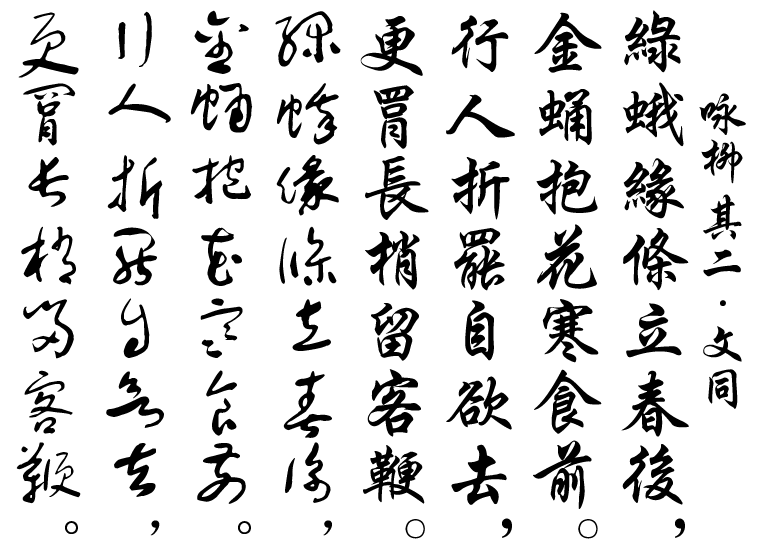 咏柳其二·文同
綠蛾緣條立春後，
金蛹抱花寒食前。
行人折罷自欲去，
更罥長梢留客鞭。
綠蛾緣條立春後，
金蛹抱花寒食前。
行人折罷自欲去，
更罥長梢留客鞭。